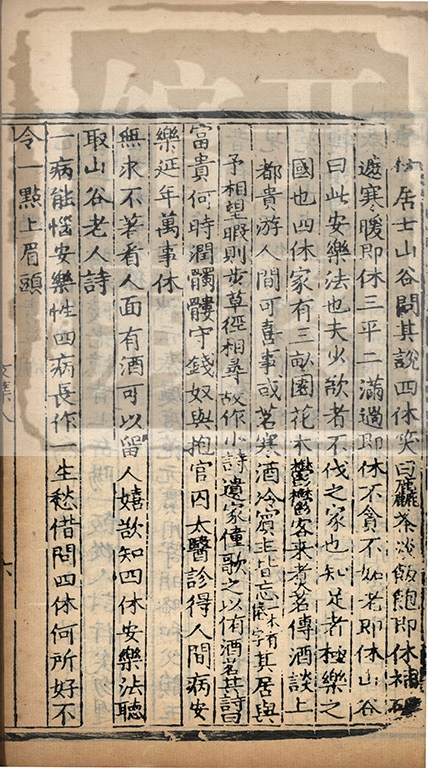 居士山谷問其說四休笑曰麤茶淡飯飽即休補破
遮寒暖即休三平二滿過即休不貪不妬老即休山谷
曰此安樂法也夫少欲者不伐之家也知足者極樂之
國也四休家有三畝園花木鬱鬱客來煮茗傳酒談上
都貴游人間可喜事或茗寒酒冷賓主皆忘一本有倦字其居與
予相望暇則步草徑相尋故作小詩遺家僮歌之以侑酒茗其詩曰
富貴何時潤髑髏守錢奴與抱官囚太醫診得人間病安
樂延年萬事休
無求不著看人面有酒可以留人嬉欲知四休安樂法聽
取山谷老人詩
一病能惱安樂性四病長作一生愁借問四休何所好不
令一點上眉頭
六